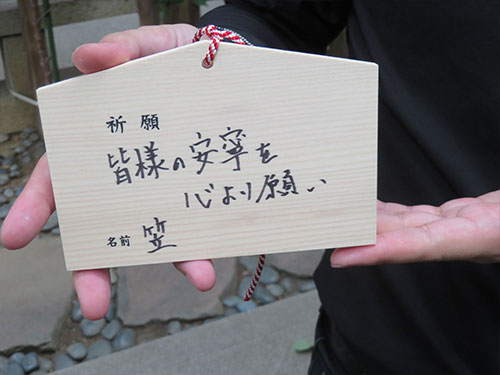 祈願
皆様の安寧を
心より願い
名前 笠